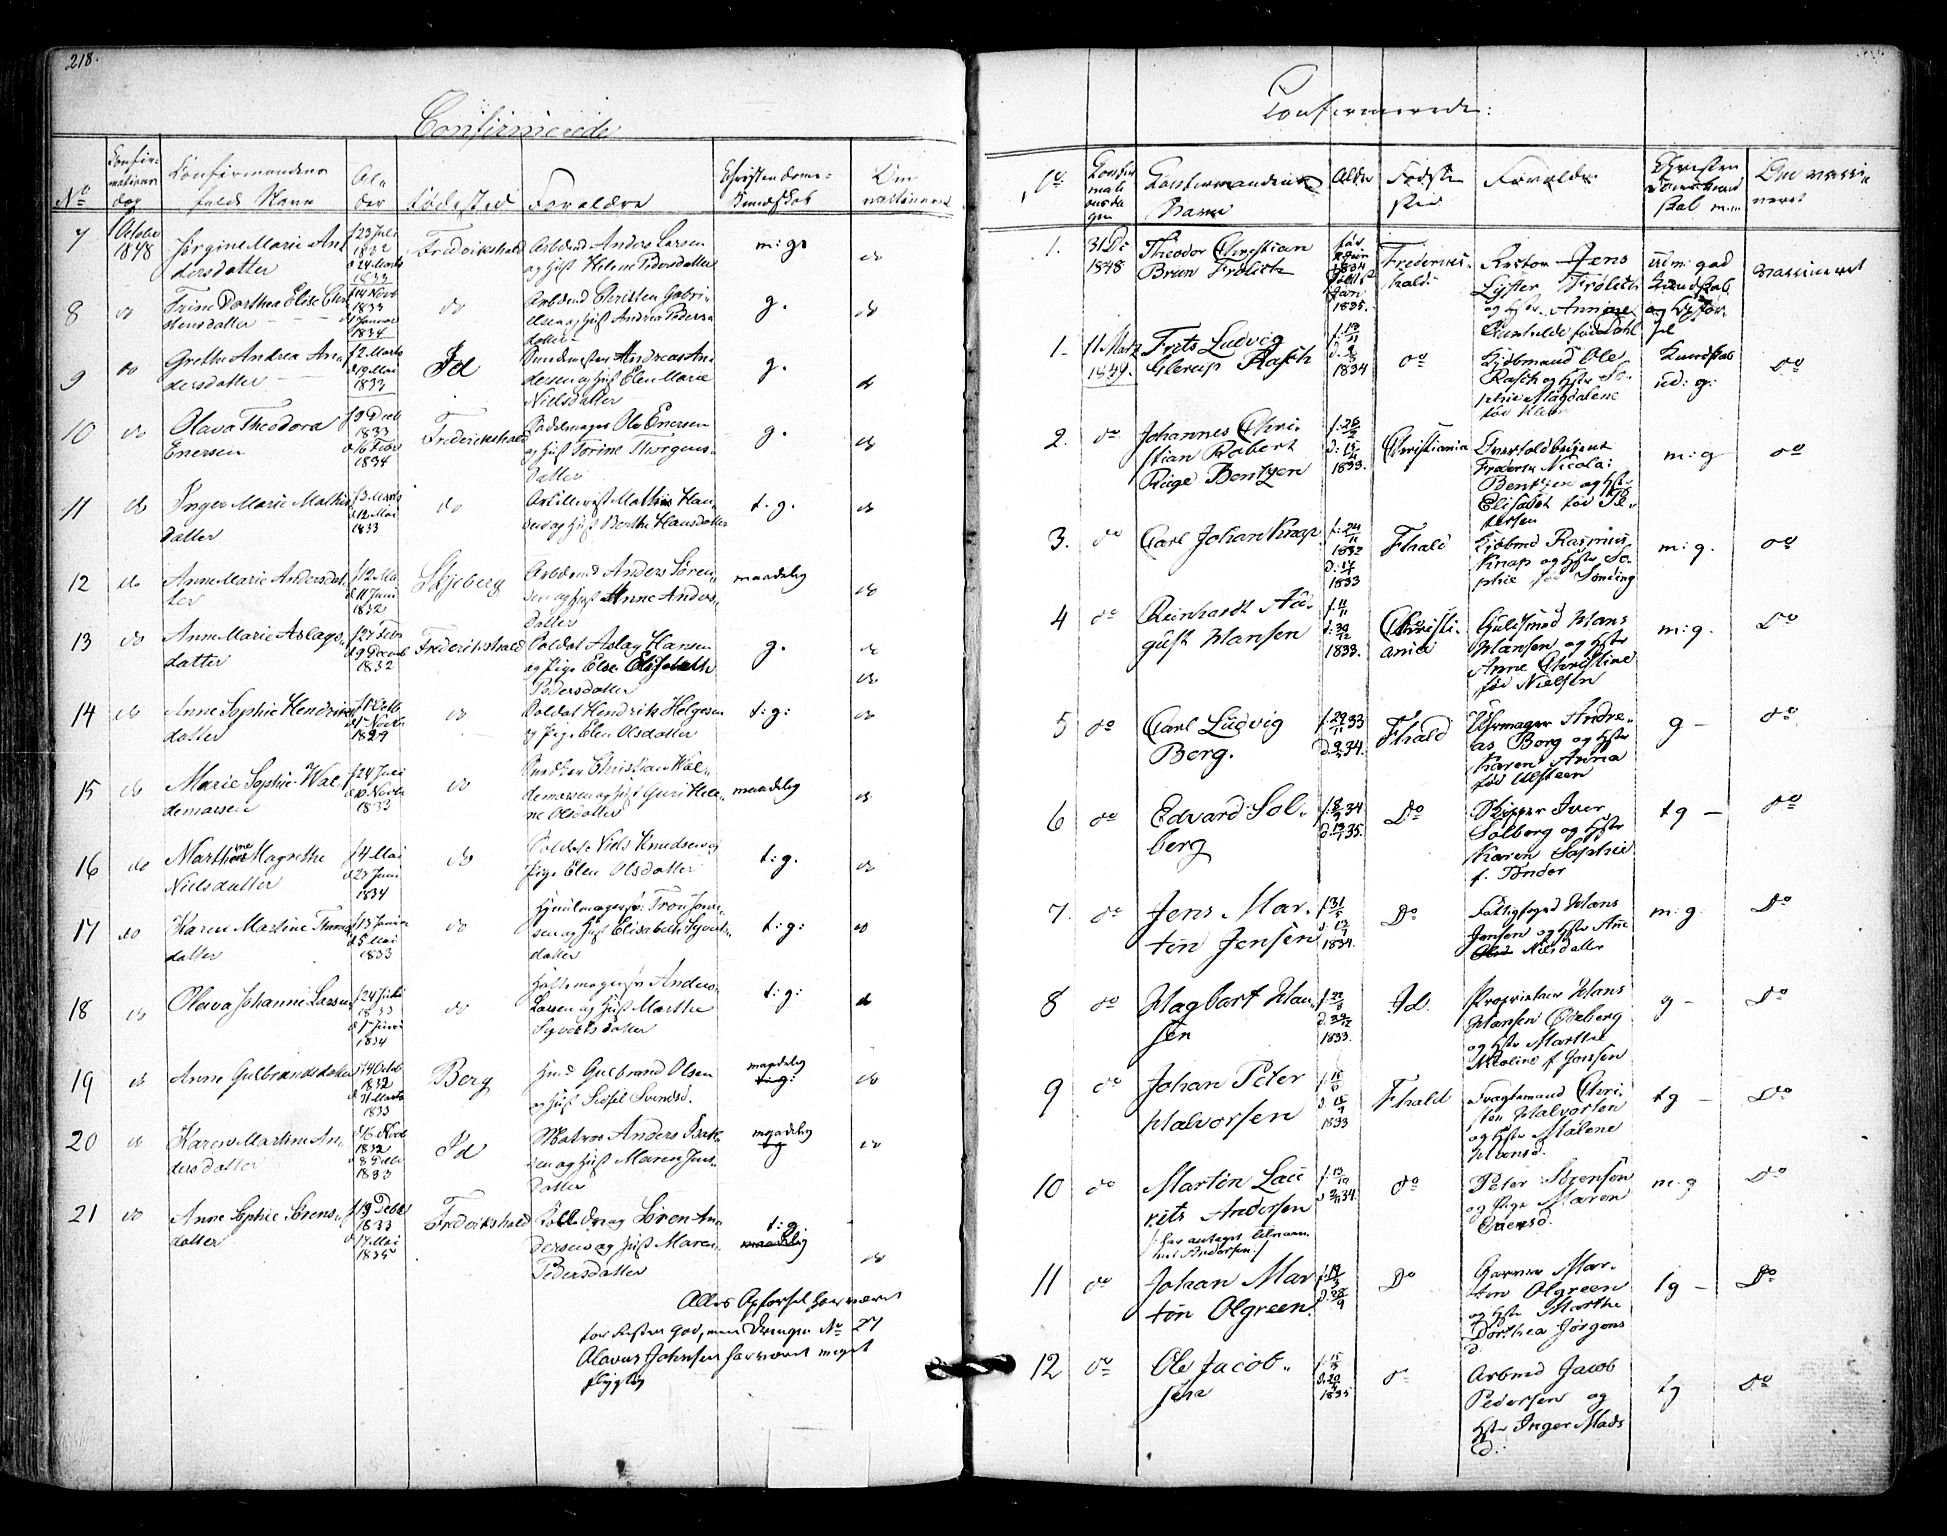 218.
Confirmerede
No
Confir-
mations
dag
Confirmandens
fulde Navn
Al-
der
Fødested
Forældre
Christendoms-
Kundskab
Om
vaccineret
7
1 October
1848
Jørgine Marie An-
dersdatter
f 23 Juli
1832
d 24 Marts
1833
Fredrikshald
Arbdmd Anders Larsen
og Hust Helene Pedersdatter
m: g.
do
8
do
Trine Dorthea Elise Chri-
stensdatter
f 14 Novb
1833
d 1 Januar
1834
do
Arbdmd Christen Gabri-
elsen og Hust Andrea Peders-
datter
g.
do
9
do
Grethe Andrea An-
dersdatter
f 2 Marts
d 19 Mai
1833
Id
Bundemester Andreas An-
dersen og Hust Elen Marie
Nielsdatter
g.
do
10
do
Olava Theodora
Enersen
f 9 Decb
1833
d 16 Febr
1834
Fredrikshald
Sadelmager Ole Enersen
og Hust Torine Thorgers-
datter
g.
do
11
do
Inger Marie Mathis-
datter
f 3 Marts
d 12 Mai
1833
do
Artillerist Mathis Han-
sen og Hust Berthe Hansdatter
t. g.
do
12
do
Anne Marie Andersdat-
ter
f 12 Mai
d 11 Juni
1832
Skjeberg
Arbdmd Anders Søren-
sen og Hust Anne Anders-
datter
maadelig
do
13
do
Anne Marie Aslags-
datter
f 27 Febr
d 9 Decemb
1832
Fredrikshald
Soldat Aslag Hansen
og Pige Else Elisabeth
Pedersdatter
g.
do
do
14
do
Anne Sophie Hendriks-
datter
f 1 Octb
d 1 Novb
1829
do
Soldat Hendrik Helgesen
og Pige Elen Olsdatter
t: g:
do
15
do
Marie Sophie Wal-
demarsen
f 24 Juli
d 10 Novb
1833
do
Snedker Christian Wal-
demarsen og Hust Guri Hele-
ne Olsdatter
maadelig
do
16
do
Marthine Magrethe
Nielsdatter
f 4 Mai
d 27 Juni
1834
do
Soldat Niels Knudsen og
Pige Elen Olsdatter
t. g.
do
17
do
Karen Martine Trons-
datter
f 13 Januar
d 5 Mai
1833
do
Hjulmagersv: Tron Jen-
sen og Hust Elisabeth Syverts-
datter
t: g:
do
18
do
Olava Johanne Larsen
f 24 Juli
1833
d 1 Juni
1834
do
Hattemagersv Anders
Larsen og Hust Marthe
Syvertsdatter
t: g:
do
19
do
Anne Gulbrandsdatter
f 14 Octob
1832
d 31 Marts
1833
Berg
Hmd Gulbrand Olsen
og Hust Sidsel Svendsd.
maadelig
t: g:
do
20
do
Karen Martine An-
dersdatter
f 16 Novb
1832
1833
Id
Matros Anders Isak-
sen og Hust Maren Jens-
datter
maadelig
do
21
do
Anne Sophie Sørens-
datter
f 19 Debr
1833
d 17 Mai
1835
Fredrikshald
Søren An-
dersen og Hust Maren
Pedersdatter
t: g.
maadelig
do
Alles Opførsel har været
for Resten god, men Drengen No 27
Olavus Johnsen har været meget
flygtig
Confirmerede:
No
Confir-
mati-
onsda-
gen
Confirmandens
Navn
Alder
Føde
sted
Forældre
Christen
doms Kund
skab m.m.
Om vacci-
neret
1.
31 De
1848
Theodor Christian
Brun Frølich
1834
Jan
1835.
Frederiks-
hald.
Pastor Jens
Lyster Frølich
og Hstr. Annine
Gunhilde fød Dahl
udm: god
Kundskab
og Opfør-
sel
vaccineret
1.
11 Marts
1849.
Frits Ludvig
Glerup Rasch
f. 13/11
1834
do
Kjøbmand Ole
Rasch og Hstr So-
phie Magdalene
fød Klein
Kundskab
ud: g:
do
2.
do
Johannes Chri-
stian Robert
Riige Bentzen
f. 26/2
d. 15/4
1833.
Christiania
Overtoldbetjent
Frederik Nicolai
Bentzen og Hstr
Elisabet fød Pe-
tersen
m: g
do
3.
do
Carl Johan Knap
f. 24/11
1832
d. 17/4
1833
Fhald
Kjøbmd Rasmus
Knap og Hstr So-
phie fød Sonding
m: g.
do
4
do
Reinhardt Au-
gust Hansen
f. 11/11
d. 30/12
1833.
Christi-
ania
Guldsmed Hans
Hansen og Hstr
Anne Christine
fød Nielsen
m: g.
do
5
do
Carl Ludvig
Berg.
f. 29/11 33
d. 9/3 34.
Fhald
Uhrmager Andre-
as Berg og Hstr
Karen Anna
fød Ulsteen
g -
do
6
do
Edvard Sol-
berg
f. 8/9 34
d. 13/1 35.
Do
Skipper Iver
Solberg og Hstr
Karen Sophie
f. Tønder
tg -
do
7.
do
Jens Mar-
tin Jensen
f. 31/5
d. 13/7
1834.
Do
Fattigfoged Hans
Jensen og Hstr Ane
Nilsdatter
m: g.
Do
8
do
Hagbart Han-
sen
d. 29/12
1833.
Id.
Proprietær Hans
Hansen Ödeberg
og Hstr Marthe
Nicoline f. Jonssen
g -
Do
9
do
Johan Peter
Halvorsen
f. 15/6
d. 15/9
1833
Fhald
Fragtemand Chri-
sten Halvorsen
og Hstr Malene
Hansd.
tg -
Do
10
do
Martin Lau
rits Andersen
/: har antaget tilnav-
net Andersen :/
f. 13/10
34.
do
Peter Sørensen
og Pige Maren
Enersd.
m: g
Do
11
do
Johan Mar
tin Olgreen
Do
Garver Mar-
tin Olgreen
og Hstr Marthe
Dorthea Jørgens
d.
tg -
Do
12
do
Ole Jacob-
sen
f. 15/3
1835
do
Arbmd Jacob
Pedersen og
Hstr Inger Mads
d.:
tg
Do